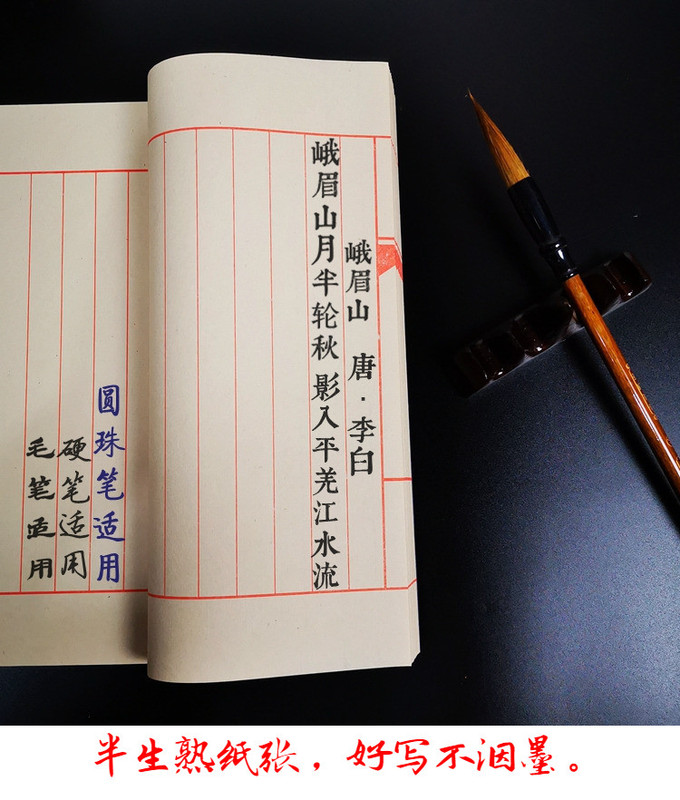 峨眉山 唐·李白
峨眉山月半轮秋 影入平羌江水流
圆珠笔适用
硬笔适用
毛笔适用
半生熟纸张，好写不洇墨。